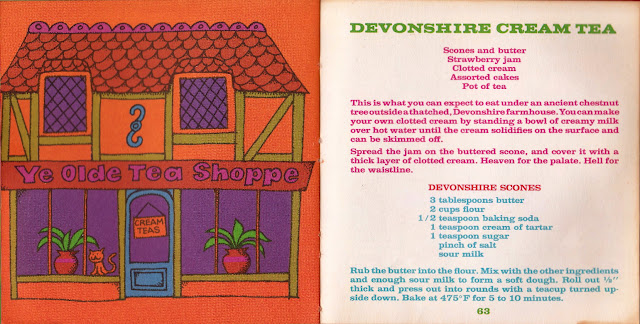 Ye Olde Tea Shoppe
CREAM
TEAS
DEVONSHIRE CREAM TEA
Scones and butter
Strawberry jam
Clotted cream
Assorted cakes
Pot of tea
This is what you can expect to eat under an ancient chestnut
tree outside a thatched, Devonshire farmhouse. You can make
your own clotted cream by standing a bowl of creamy milk
over hot water until the cream solidifies on the surface and
can be skimmed off.
Spread the jam on the buttered scone, and cover it with a
thick layer of clotted cream. Heaven for the palate. Hell for
the waistline.
DEVONSHIRE SCONES
3 tablespoons butter
2 cups flour
1/2 teaspoon baking soda
1 teaspoon cream of tartar
1 teaspoon sugar
pinch of salt
sour milk
Rub the butter into the flour. Mix with the other ingredients
and enough sour milk to form a soft dough. Roll out ½″
thick and press out into rounds with a teacup turned up-
side down. Bake at 475°F for 5 to 10 minutes.
63